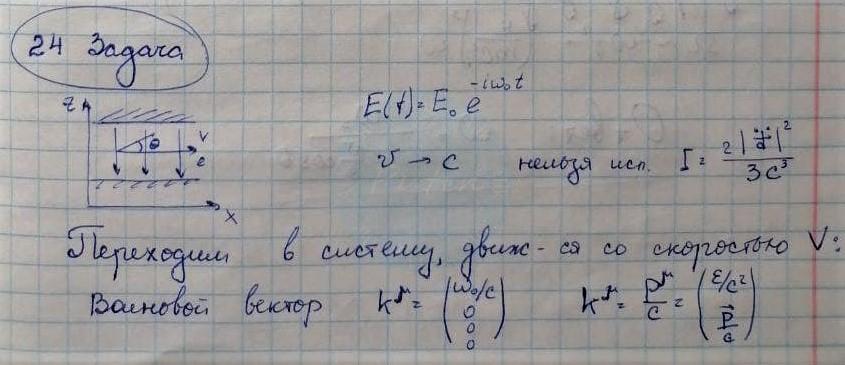 24 Задача
z
θ V
e
x
E(t) = E₀ e^{-iω₀t}
v → c нельзя исп. I = 2|d̈|²/3c³
Переходим в систему, движ-ся со скоростью V:
Волновой вектор k^μ = (ω₀/c 0 0 0) k^μ = p^μ/c = (ε/c² p⃗/c)